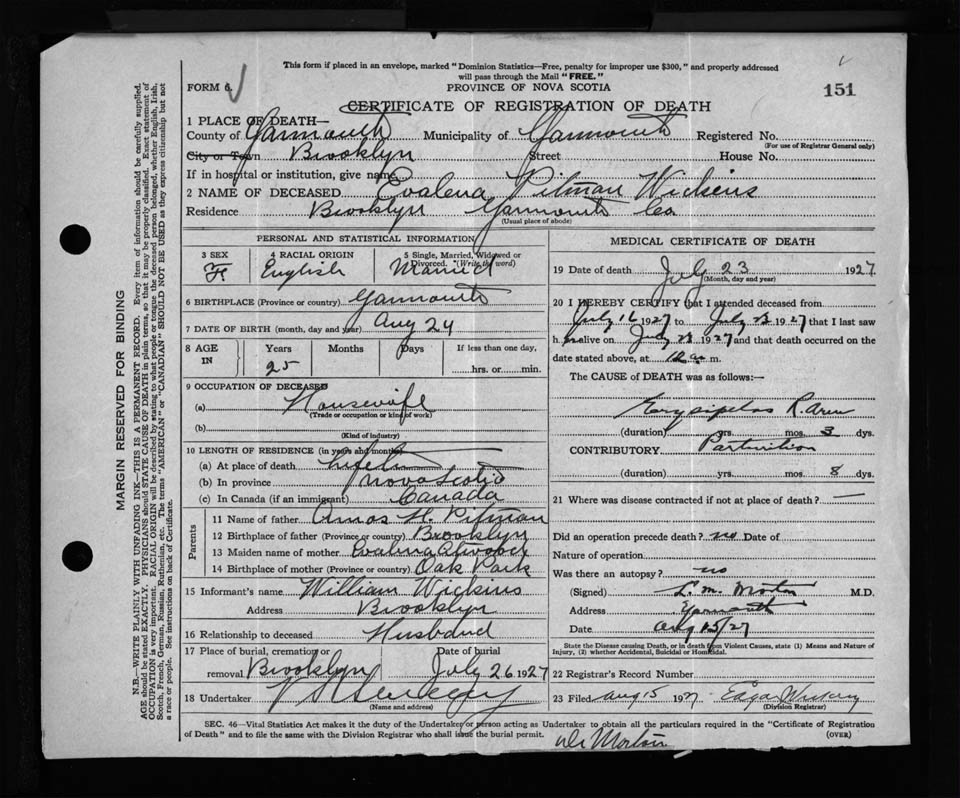 This form if placed in an envelope, marked "Dominion Statistics—Free, penalty for improper use $300," and properly addressed
will pass through the Mail "FREE."
FORM 6.
PROVINCE OF NOVA SCOTIA
151
CERTIFICATE OF REGISTRATION OF DEATH
1 PLACE OF DEATH—
County of Yarmouth Municipality of Yarmouth Registered No.
(For use of Registrar General only)
City or Town Brooklyn Street House No.
If in hospital or institution, give name
2 NAME OF DECEASED Evalena Pitman Wickens
Residence Brooklyn Yarmouth Co
(Usual place of abode)
PERSONAL AND STATISTICAL INFORMATION
3 SEX F
4 RACIAL ORIGIN English
5 Single, Married, Widowed or Divorced. (Write the word) Married
6 BIRTHPLACE (Province or country) Yarmouth
7 DATE OF BIRTH (month, day and year) Aug 24
8 AGE IN Years 25 Months Days If less than one day, hrs. or min.
9 OCCUPATION OF DECEASED
(a) Housewife
(Trade or occupation or kind of work)
(b)
(Kind of industry)
10 LENGTH OF RESIDENCE (in years and months)
(a) At place of death
(b) In province Nova Scotia
(c) In Canada (if an immigrant) Canada
Parents
11 Name of father Amos H. Pitman
12 Birthplace of father (Province or country) Brooklyn
13 Maiden name of mother Evalena Atwood
14 Birthplace of mother (Province or country) Oak Park
15 Informant's name William Wickens
Address Brooklyn
16 Relationship to deceased Husband
17 Place of burial, cremation or removal Brooklyn Date of burial July 26 1927
18 Undertaker
(Name and address)
MEDICAL CERTIFICATE OF DEATH
19 Date of death July 23 1927
(Month, day and year)
20 I HEREBY CERTIFY that I attended deceased from
July 16 1927 to July 23 1927 that I last saw
h er alive on July 23 1927 and that death occurred on the
date stated above, at 12 a m.
The CAUSE of DEATH was as follows:—
Erysipelas R. arm
(duration) yrs. mos. 3 dys.
CONTRIBUTORY Parturition
(duration) yrs. mos. 8 dys.
21 Where was disease contracted if not at place of death? —
Did an operation precede death? no Date of
Nature of operation
Was there an autopsy? no
(Signed) L. M. Morton M.D.
Address Yarmouth
Date Aug 15/27
State the Disease causing Death, or in death from Violent Causes, state (1) Means and Nature of
Injury, (2) whether Accidental, Suicidal or Homicidal.
22 Registrar's Record No.
23 Filed Aug 15 1927 Edgar
(Division Registrar)
SEC. 46—Vital Statistics Act makes it the duty of the Undertaker or person acting as Undertaker to obtain all the particulars required in the "Certificate of Registration
of Death" and to file the same with the Division Registrar who shall issue the burial permit.
(OVER)
Dr Morton
MARGIN RESERVED FOR BINDING
N.B.—WRITE PLAINLY WITH UNFADING INK—THIS IS A PERMANENT RECORD. Every item of information should be carefully supplied.
AGE should be stated EXACTLY. PHYSICIANS should STATE CAUSE OF DEATH in plain terms, so that it may be properly classified. Exact statement of
OCCUPATION is very important. RACIAL ORIGIN will be described by stating to what people or tongue the deceased person belonged, whether English, Irish,
Scotch, French, German, Russian, Ruthenian, etc. The terms "AMERICAN" or "CANADIAN" SHOULD NOT BE USED as they express citizenship but not
a race or people. See instructions on back of Certificate.